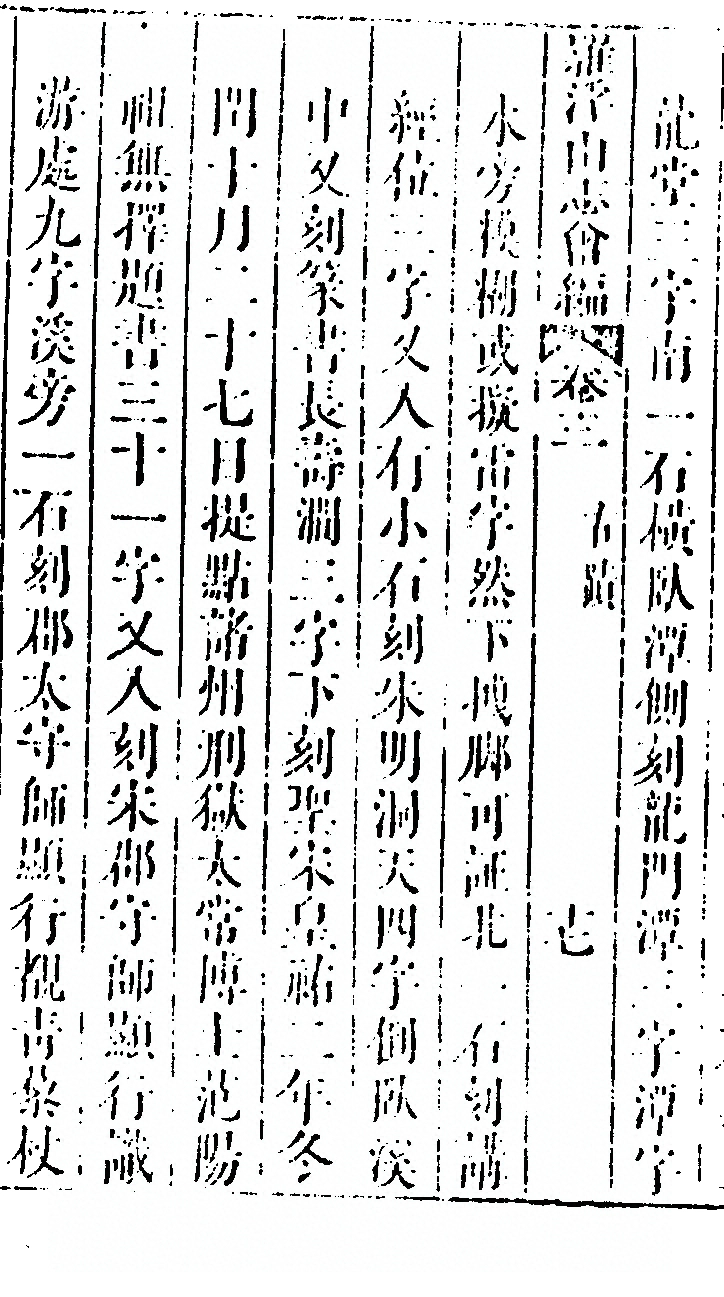 龍堂三字南一石橫臥潭側刻龍門潭三字潭字
羅浮山志會編 卷三 古蹟 十七
水旁模糊或擬雷字然下拽腳可証北一石刻講
經位三字又人行小石刻朱明洞天四字倒臥溪
中又刻篆書長壽澗三字下刻聖宋皇祐二年冬
閏十月二十七日提點諸州刑獄太常博士范陽
祖無擇題書三十一字又人刻宋郡守師顯行識
游處九字溪旁一石刻郡太守師顯行攏青藜杖